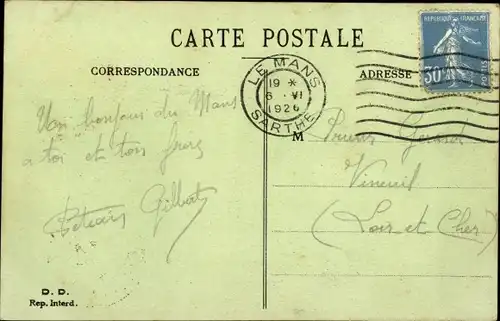 CARTE POSTALE
CORRESPONDANCE
ADRESSE
REPUBLIQUE FRANÇAISE
30
LE MANS
19 *
6 · VI
1926
SARTHE
Un bonjour du Mans
à toi et ton frère
Gilbert
M
Vineuil
(Loir et Cher)
D. D.
Rep. Interd.